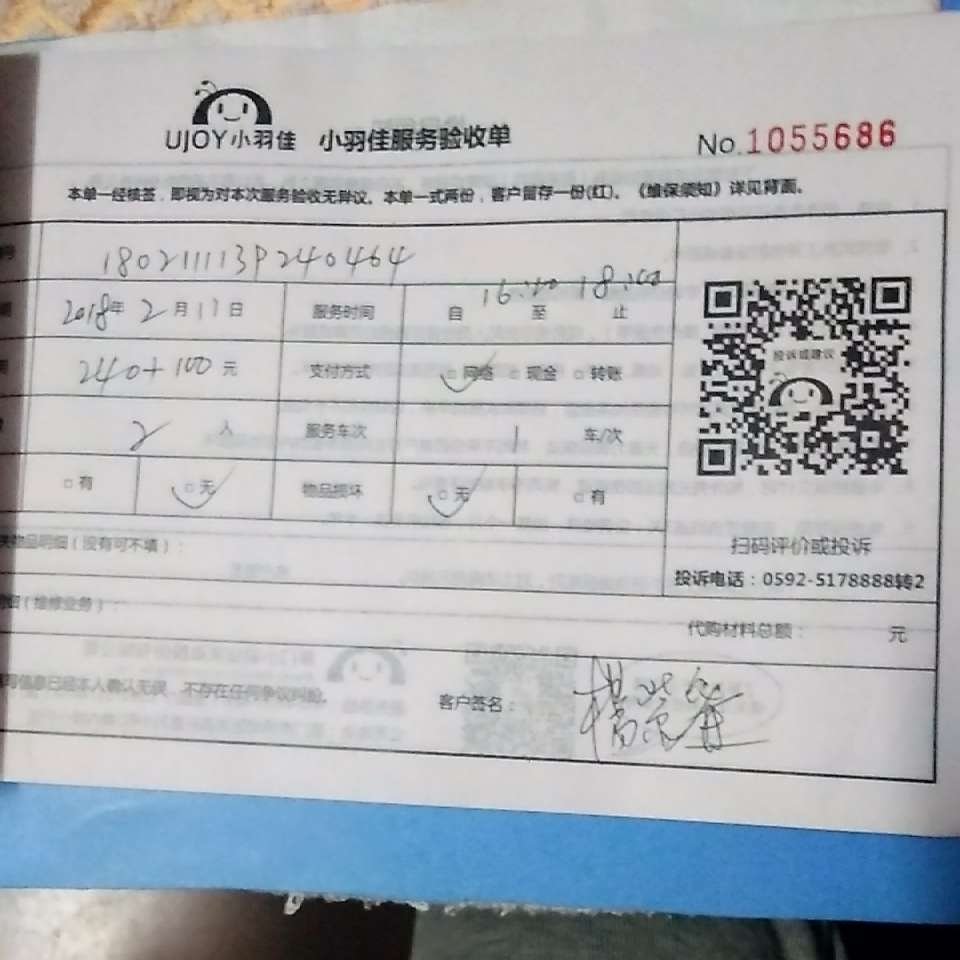 UJOY小羽佳 小羽佳服务验收单 No.1055686
本单一经核签，即视为对本次服务验收无异议。本单一式两份，客户留存一份(红)。《维保须知》详见背面。
号 180211113P240464
2018年2月11日 服务时间 自16:00至18:00止
240+100元 支付方式 □网络 □现金 □转账
2人 服务车次 1 车/次
□有 □无 物品损坏 □无 □有
投诉或建议
扫码评价或投诉
投诉电话：0592-5178888转2
物品明细（没有可不填）：
（维修业务）： 代购材料总额： 元
信息已经本人确认无误，不存在任何争议纠纷。 客户签名：杨